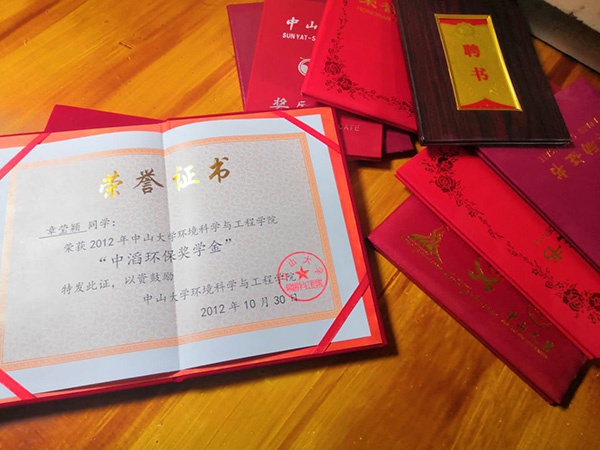 荣誉证书
章莹颖 同学：
荣获2012年中山大学环境科学与工程学院
“中滔环保奖学金”
特发此证，以资鼓励
中山大学环境科学与工程学院
2012年10月30日
中山
SUN YAT-S
奖
荣
聘书
证书
书
中山大学